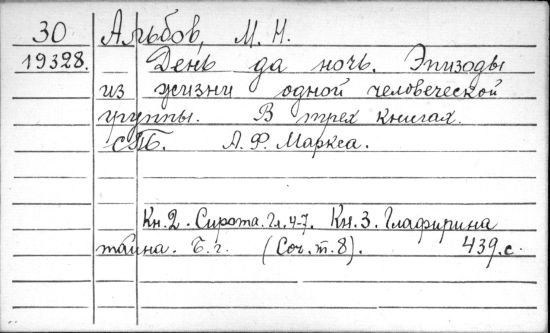 30 Альбов, М. Н.
19328. День да ночь. Эпизоды
из жизни одной человеческой
группы. В трех книгах.
СПБ. А. Ф. Маркса.
Кн. 2. Сирота. Гл. 4-7. Кн. 3. Глафирина
тайна. Б. г. (Соч. т. 8). 439. с.